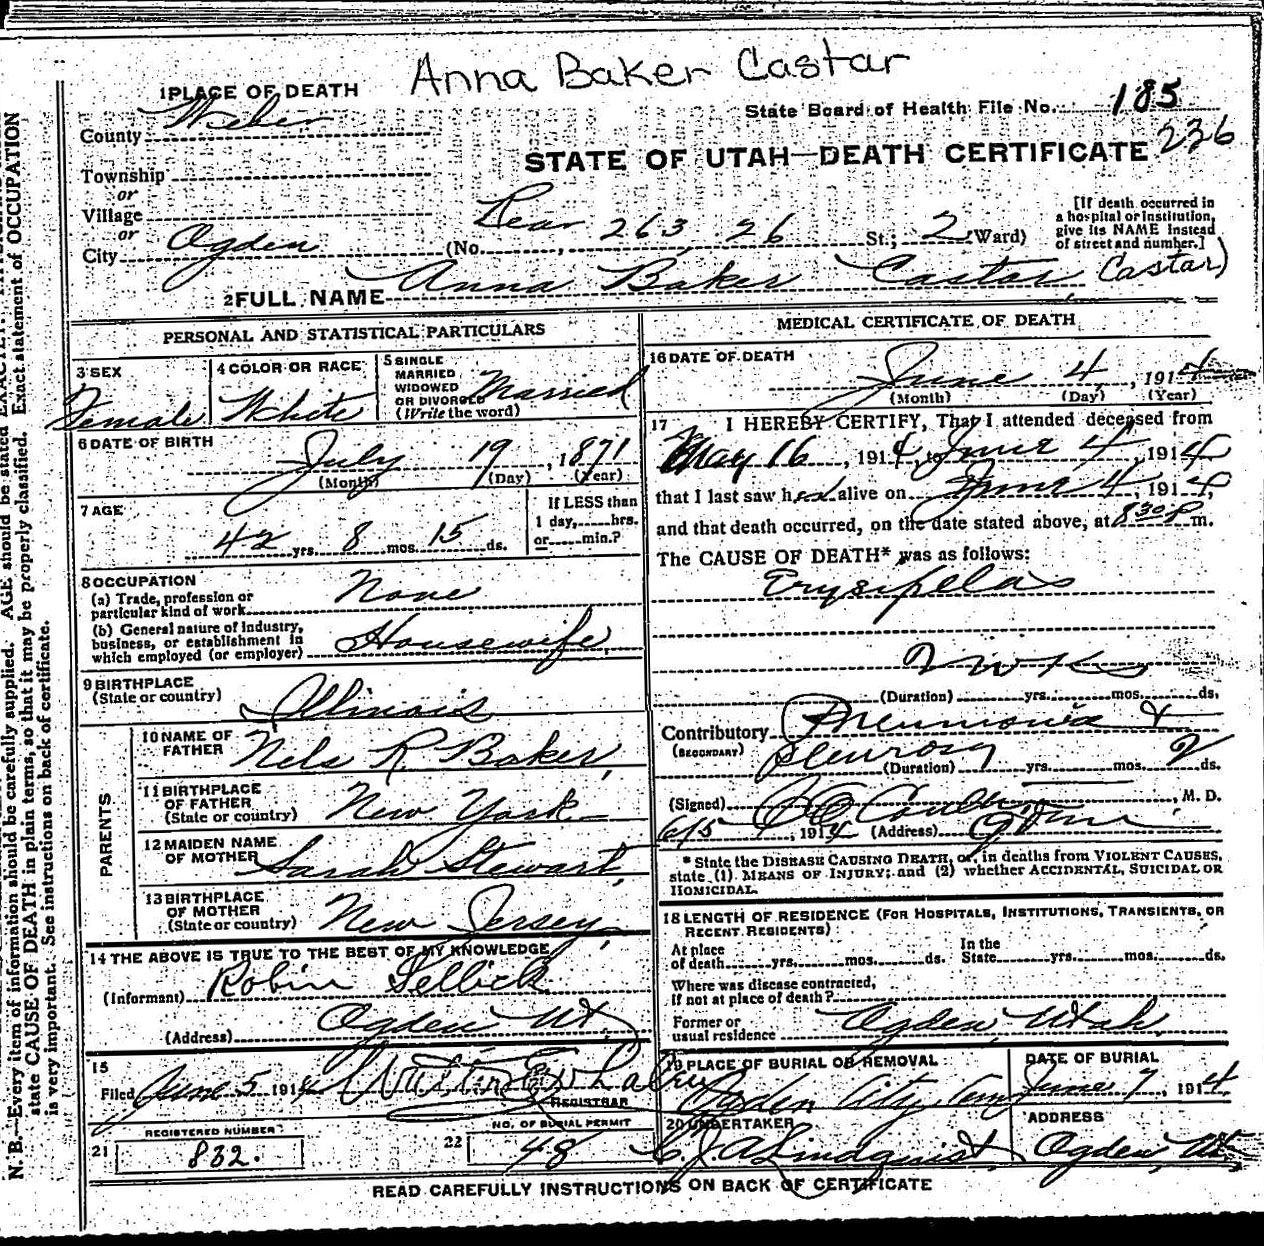 Anna Baker Castar
1 PLACE OF DEATH
State Board of Health File No. 185
236
County Weber
STATE OF UTAH—DEATH CERTIFICATE
Township
or
Village
or
City Ogden (No. Rear 263 . 26 St.; 2 Ward)
[If death occurred in
a hospital or institution,
give its NAME instead
of street and number.]
2 FULL NAME Anna Baker Caster Castar)
PERSONAL AND STATISTICAL PARTICULARS
3 SEX
Female
4 COLOR OR RACE
White
5 SINGLE
MARRIED
WIDOWED
OR DIVORCED
(Write the word)
Married
6 DATE OF BIRTH
July 19, 1871
(Month) (Day) (Year)
7 AGE
42 yrs. 8 mos. 15 ds.
If LESS than
1 day, hrs.
or min.?
8 OCCUPATION
(a) Trade, profession or
particular kind of work None
(b) General nature of industry,
business, or establishment in
which employed (or employer) Housewife
9 BIRTHPLACE
(State or country) Illinois
PARENTS
10 NAME OF
FATHER Nels R. Baker,
11 BIRTHPLACE
OF FATHER
(State or country) New York
12 MAIDEN NAME
OF MOTHER Sarah Stewart,
13 BIRTHPLACE
OF MOTHER
(State or country) New Jersey,
14 THE ABOVE IS TRUE TO THE BEST OF MY KNOWLEDGE
(Informant) Robin Sellick
(Address) Ogden Ut,
15
Filed June 5 1914
REGISTRAR
REGISTERED NUMBER
21 832.
NO. OF BURIAL PERMIT
22 48
MEDICAL CERTIFICATE OF DEATH
16 DATE OF DEATH
June 4, 1914
(Month) (Day) (Year)
17 I HEREBY CERTIFY, That I attended deceased from
May 16, 1914, to June 4, 1914
that I last saw her alive on June 4, 1914,
and that death occurred, on the date stated above, at 8 30 P m.
The CAUSE OF DEATH* was as follows:
Erysipelas
2 wks
(Duration) yrs. mos. ds.
Contributory Pneumonia &
(SECONDARY) pleurosy
(Duration) yrs. mos. 2 ds.
(Signed) , M. D.
6/5, 1914 (Address) Ogden
* State the DISEASE CAUSING DEATH, or, in deaths from VIOLENT CAUSES,
state (1) MEANS OF INJURY; and (2) whether ACCIDENTAL, SUICIDAL OR
HOMICIDAL.
18 LENGTH OF RESIDENCE (FOR HOSPITALS, INSTITUTIONS, TRANSIENTS, OR
RECENT RESIDENTS)
At place
of death yrs. mos. ds.
In the
State yrs. mos. ds.
Where was disease contracted,
if not at place of death?
Former or
usual residence Ogden, Utah,
19 PLACE OF BURIAL OR REMOVAL
Ogden City Cem
DATE OF BURIAL
June 7, 1914
20 UNDERTAKER
C. J. A. Lindquist,
ADDRESS
Ogden, Ut,
READ CAREFULLY INSTRUCTIONS ON BACK OF CERTIFICATE
N. B.—Every item of information should be carefully supplied. AGE should be stated EXACTLY.
state CAUSE OF DEATH in plain terms, so that it may be properly classified. Exact statement of OCCUPATION
is very important. See instructions on back of certificate.